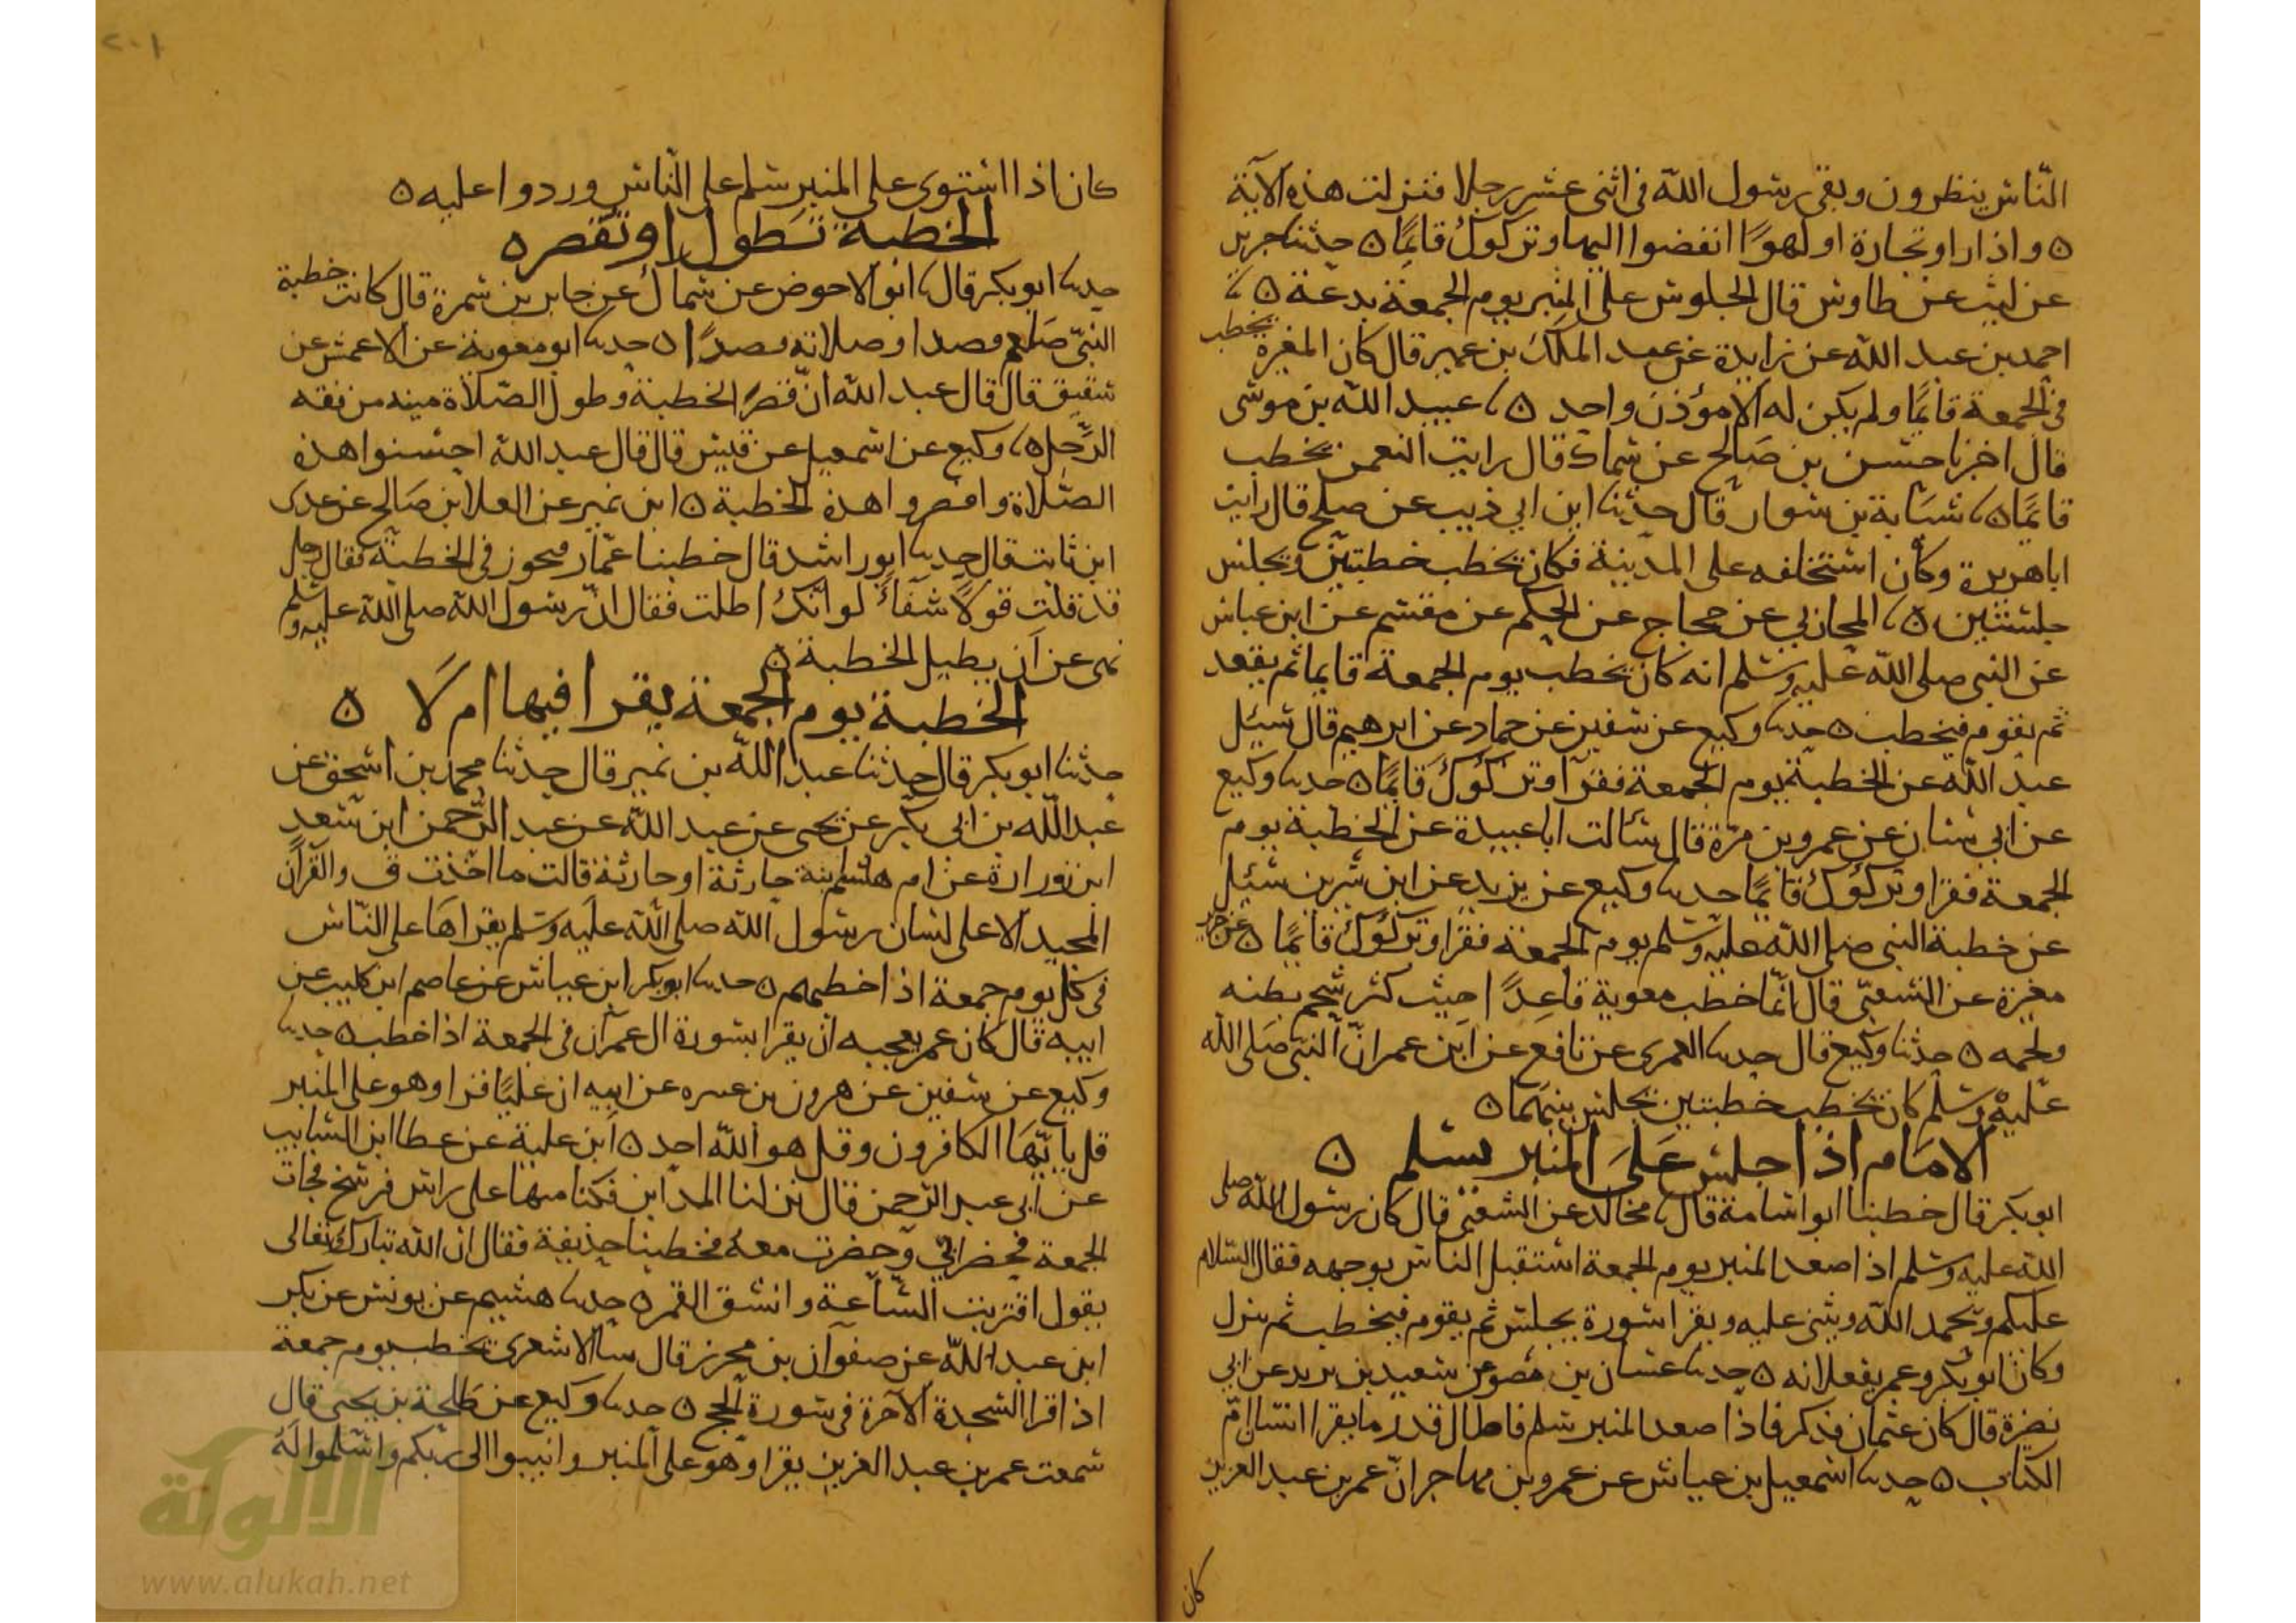 النّاس ينظرون وبقى رسول الله فى اثنى عشر رجلا فنزلت هذه الآية
ه واذا راو تجارة او لهوًا انفضوا اليها وتركوك قائمًا ه حدثنا جرير
عن ليث عن طاوس قال الجلوس على المنبر يوم الجمعة بدعة ه نا
احمد بن عبد الله عن زايدة عن عبد الملك بن عمير قال كان المغيرة يخطب
فى الجمعة قائمًا ولم يكن له الا مؤذن واحد ه نا عبيد الله بن موسى
قال اخبرنا حسن بن صالح عن سماك قال رايت النعمن يخطب
قائمًا ه نا شبابة بن سوار قال حدثنا ابن ابي ذيب عن صلح قال رايت
ابا هريرة وكان استخلفه على المدينة فكان يخطب خطبتين ويجلس
جلستين ه نا المحاربي عن حجاج عن الحكم عن مقسم عن ابن عباس
عن النبى صلى الله عليه وسلم انه كان يخطب يوم الجمعة قايما ثم يقعد
ثم يقوم فيخطب ه حدثنا وكيع عن سفين عن حماد عن ابرهيم قال سيل
عبد الله عن الخطبة يوم الجمعة فقرا وتركوك قايمًا ه حدثنا وكيع
عن ابي سنان عن عمرو بن مرّة قال سالت ابا عبيدة عن الخطبة يوم
الجمعة فقرا وتركوك قائمًا حدثنا وكيع عن يزيد عن ابن سيرين سيل
عن خطبة النبى صلى الله عليه وسلم يوم الجمعة فقرا وتركوك قائمًا ه عن جرير
مغيرة عن الشعبى قال انّما خطب معوية قاعدًا حيث كثر شحم بطنه
ولحمه ه حدثنا وكيع قال حدثنا العمرى عن نافع عن ابن عمر انّ النبى صلى الله
عليه وسلم كان يخطب خطبتين يجلس بينهما ه
الامام اذا جلس على المنبر يسلم ه
ابو بكر قال خطبنا ابو اسامة قال نا مخالد عن الشعبى قال كان رسول الله صلى
الله عليه وسلم اذا صعد المنبر يوم الجمعة استقبل الناس بوجهه فقال السلام
عليكم ويحمد الله ويثنى عليه ويقرا سورة يجلس ثم يقوم فيخطب ثم ينزل
وكان ابو بكر وعمر يفعلانه ه حدثنا غسان بن مضر عن سعيد بن يزيد عن ابي
نضرة قال كان عثمان قد كبر فاذا صعد المنبر سلم فاطال قدر ما يقرا انسان امّ
الكتاب ه حدثنا اسمعيل بن عياش عن عمرو بن مهاجر انّ عمر بن عبد العزيز
كان
٢٠١
كان اذا استوى على المنبر سلم على النّاس وردوا عليه ه
الخطبة تطول او تقصر ه
حدثنا ابو بكر قال نا ابو الاحوص عن سماك عن جابر بن سمرة قال كانت خطبة
النبىّ صلعم قصدا وصلاته قصدًا ه حدثنا ابو معوية عن الاعمش عن
شقيق قال قال عبد الله انّ قصر الخطبة وطول الصّلاة مينه من فقه
الرّجل ه نا وكيع عن اسمعيل عن قيس قال قال عبد الله احسنوا هذه
الصّلاة واقصروا هذه الخطبة ه ابن نمير عن العلا بن صالح عن عدى
ابن ثابت قال حدثنا ابو راشد قال خطبنا عمّار فتجوز فى الخطبة فقال رجل
قد قلت قولًا شفاءً لو انّك اطلت فقال انّ رسول الله صلى الله عليه وسلم
نهى عن ان يطيل الخطبة ه
الخطبة يوم الجمعة يقرا فيها ام لا ه
حدثنا ابو بكر قال حدثنا عبد الله بن نمير قال حدثنا محمد بن اسحق عن
عبد الله بن ابى بكر عن يحيى عن عبد الله عن عبد الرّحمن ابن سعد
ابن زرارة عن ام هشام بنة حارثة او حارثة قالت ما اخذت ق والقرآن
المجيد الا على لسان رسول الله صلى الله عليه وسلم يقراها على النّاس
فى كل يوم جمعة اذا خطبهم ه حدثنا ابو بكر ابن عياش عن عاصم ابن كليب عن
ابيه قال كان عمر يعجبه ان يقرا بسورة ال عمران فى الجمعة اذا خطب ه حدثنا
وكيع عن سفين عن هرون بن عنتره عن ابيه ان عليًا قرا وهو على المنبر
قل يا ايّها الكافرون وقل هو الله احد ه ابن علية عن عطا ابن السايب
عن ابى عبد الرحمن قال نزلنا المداين فكنا منها على راس فرسخ فجات
الجمعة فحضر ابي وحضرت معه فخطبنا حذيفة فقال ان الله تبارك وتعالى
يقول اقتربت السّاعة وانشق القمر ه حدثنا هشيم عن يونس عن بكر
ابن عبد الله عن صفوان بن محرز قال بينا الاشعرى يخطب يوم جمعة
اذ قرا السّجدة الآخرة فى سورة الحج ه حدثنا وكيع عن طلحة بن يحيى قال
سمعت عمر بن عبد العزيز يقرا وهو على المنبر وانيبوا الى ربكم واسلموا له
الألوكة
www.alukah.net